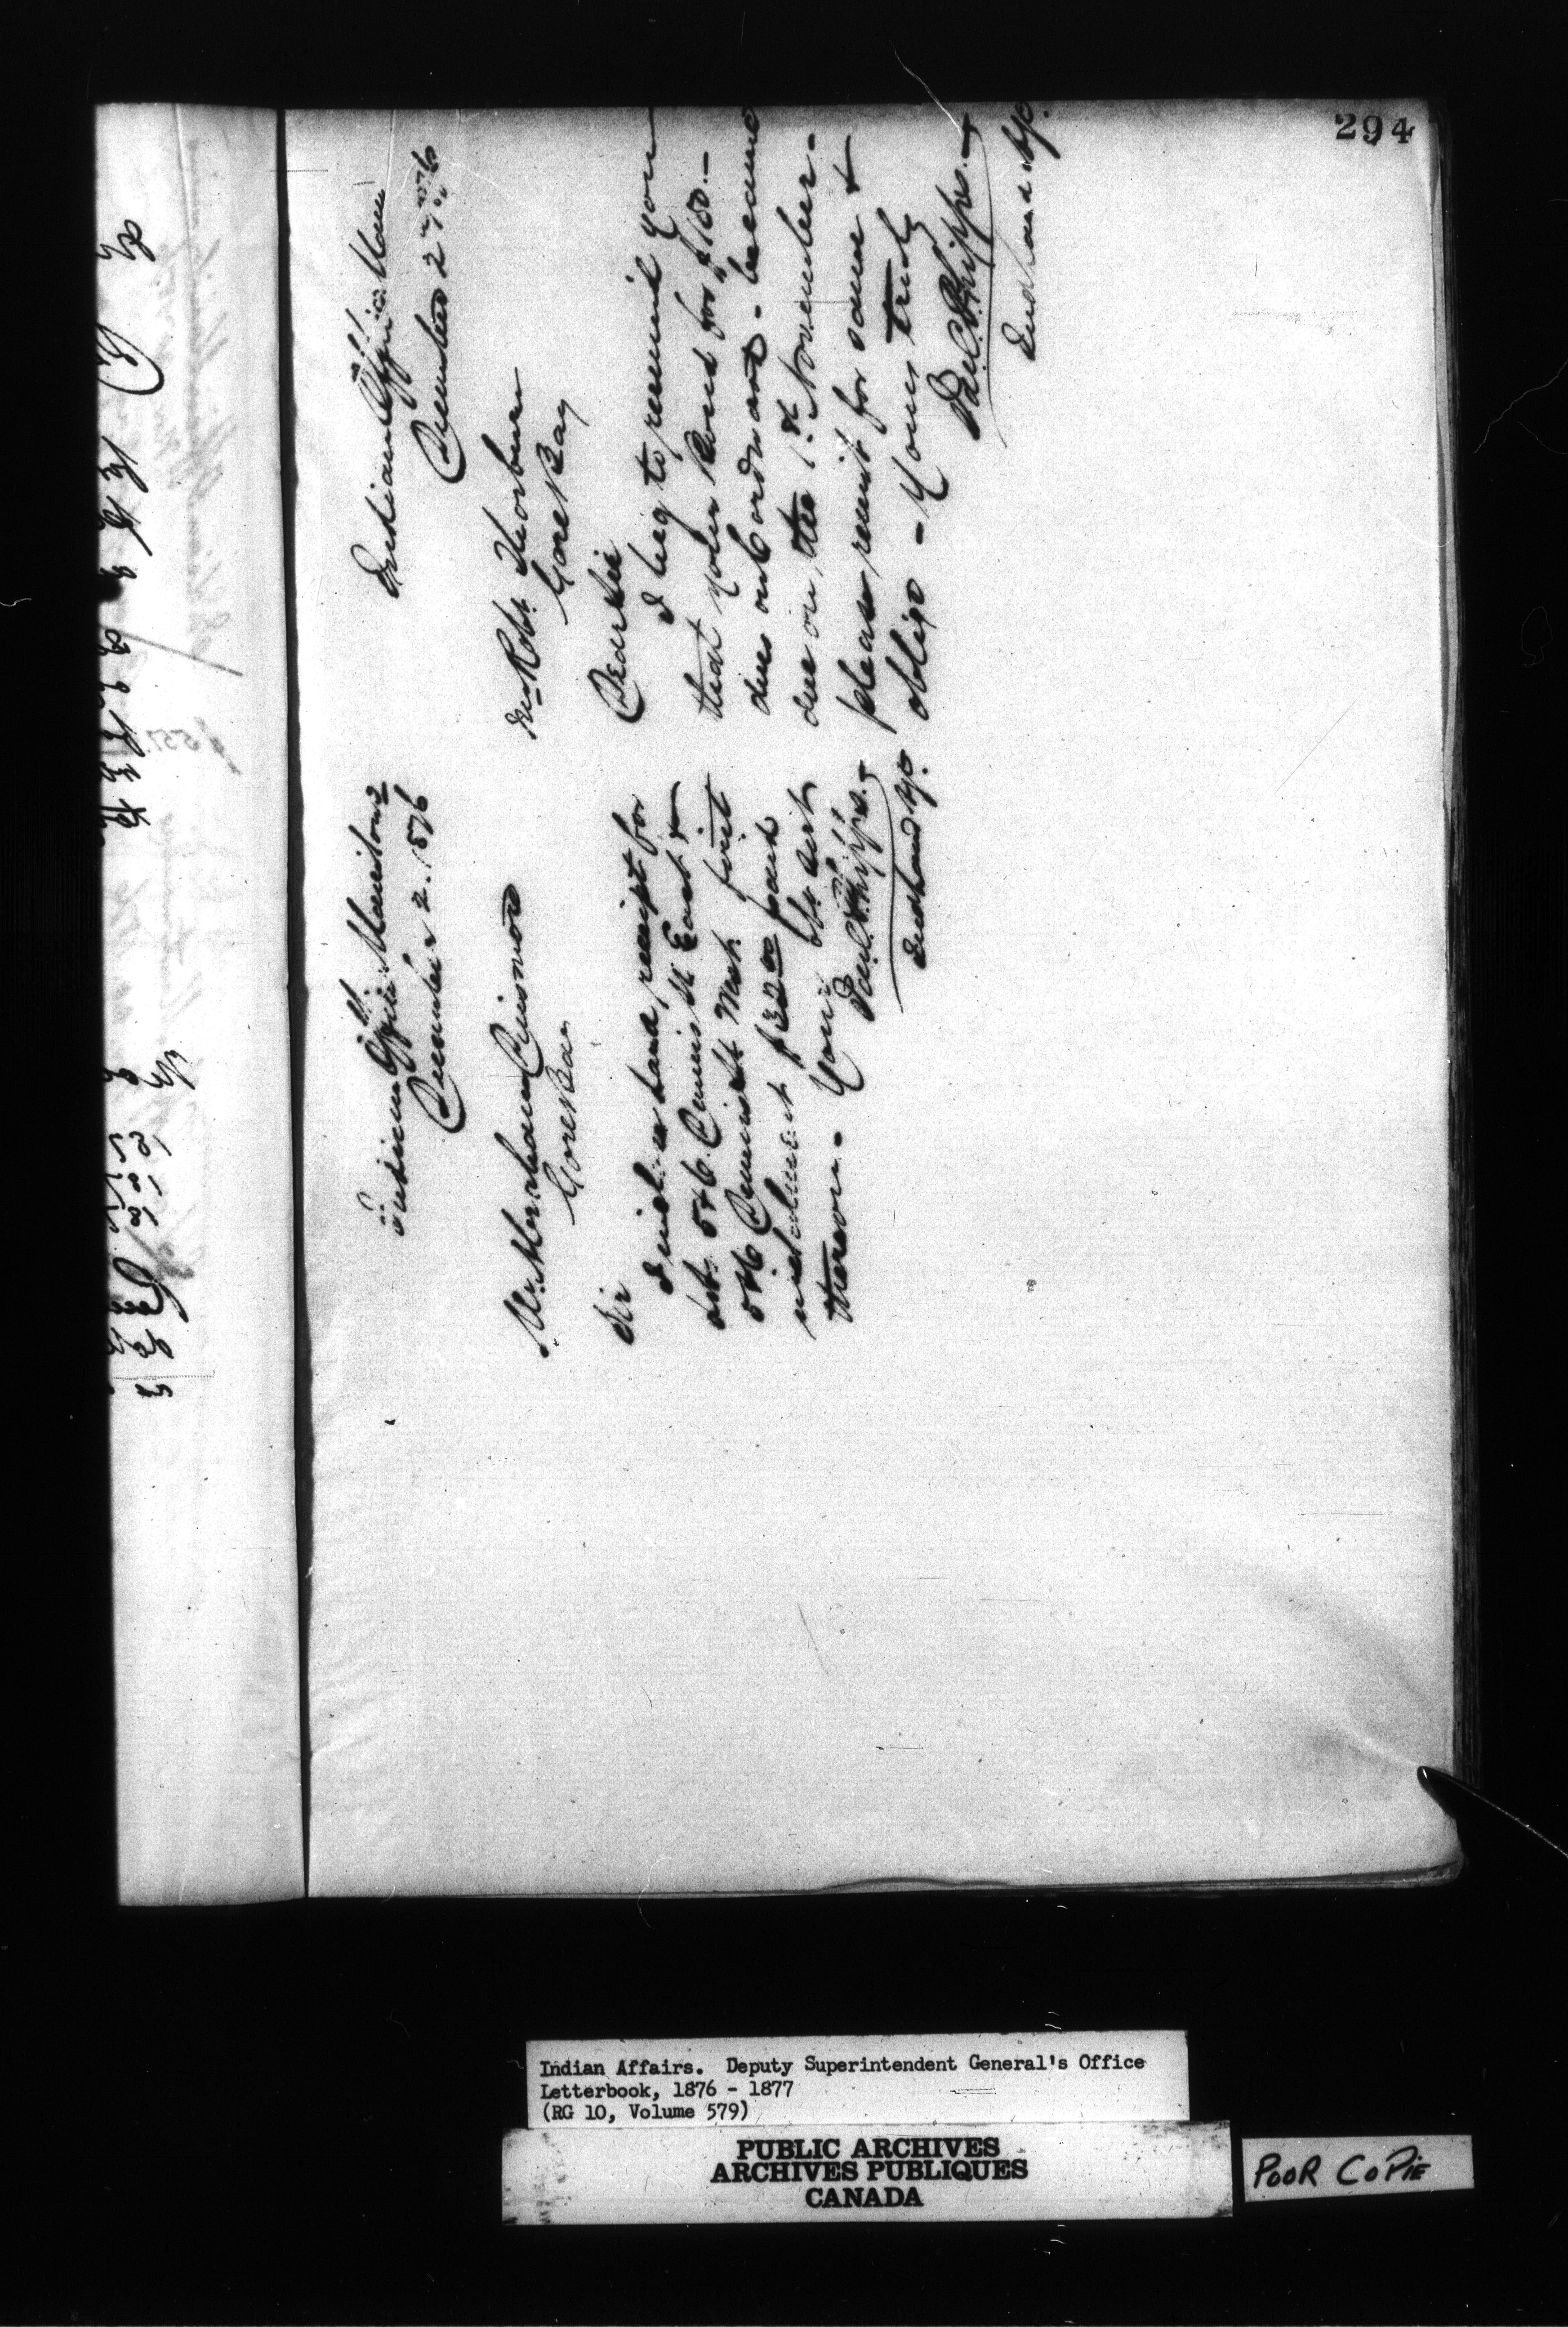 294
Indian Office Manitou
December 2. 1876
Mr Abraham Dinsmore
Gore Bay
Sir
I enclose land receipt for
lots 5 & 6 Dennis St East &
5 & 6 Dennis St West first
instalment $32.00 paid
thereon - Your obt sert
Wm C. Phipps.
Ind Land Agt.
Indian Office Mani
December 2nd 1876
Mr Robt Thorburn
Gore Bay
Dear Sir
I beg to remind you
that your Bond for $150.-
dues on Cordwood - became
due on the 1st November -
please remit for same &
oblige - Yours truly
Wm C. Phipps.
Ind Land Agt.
Indian Affairs. Deputy Superintendent General's Office
Letterbook, 1876 - 1877
(RG 10, Volume 579)
PUBLIC ARCHIVES
ARCHIVES PUBLIQUES
CANADA
POOR COPIE